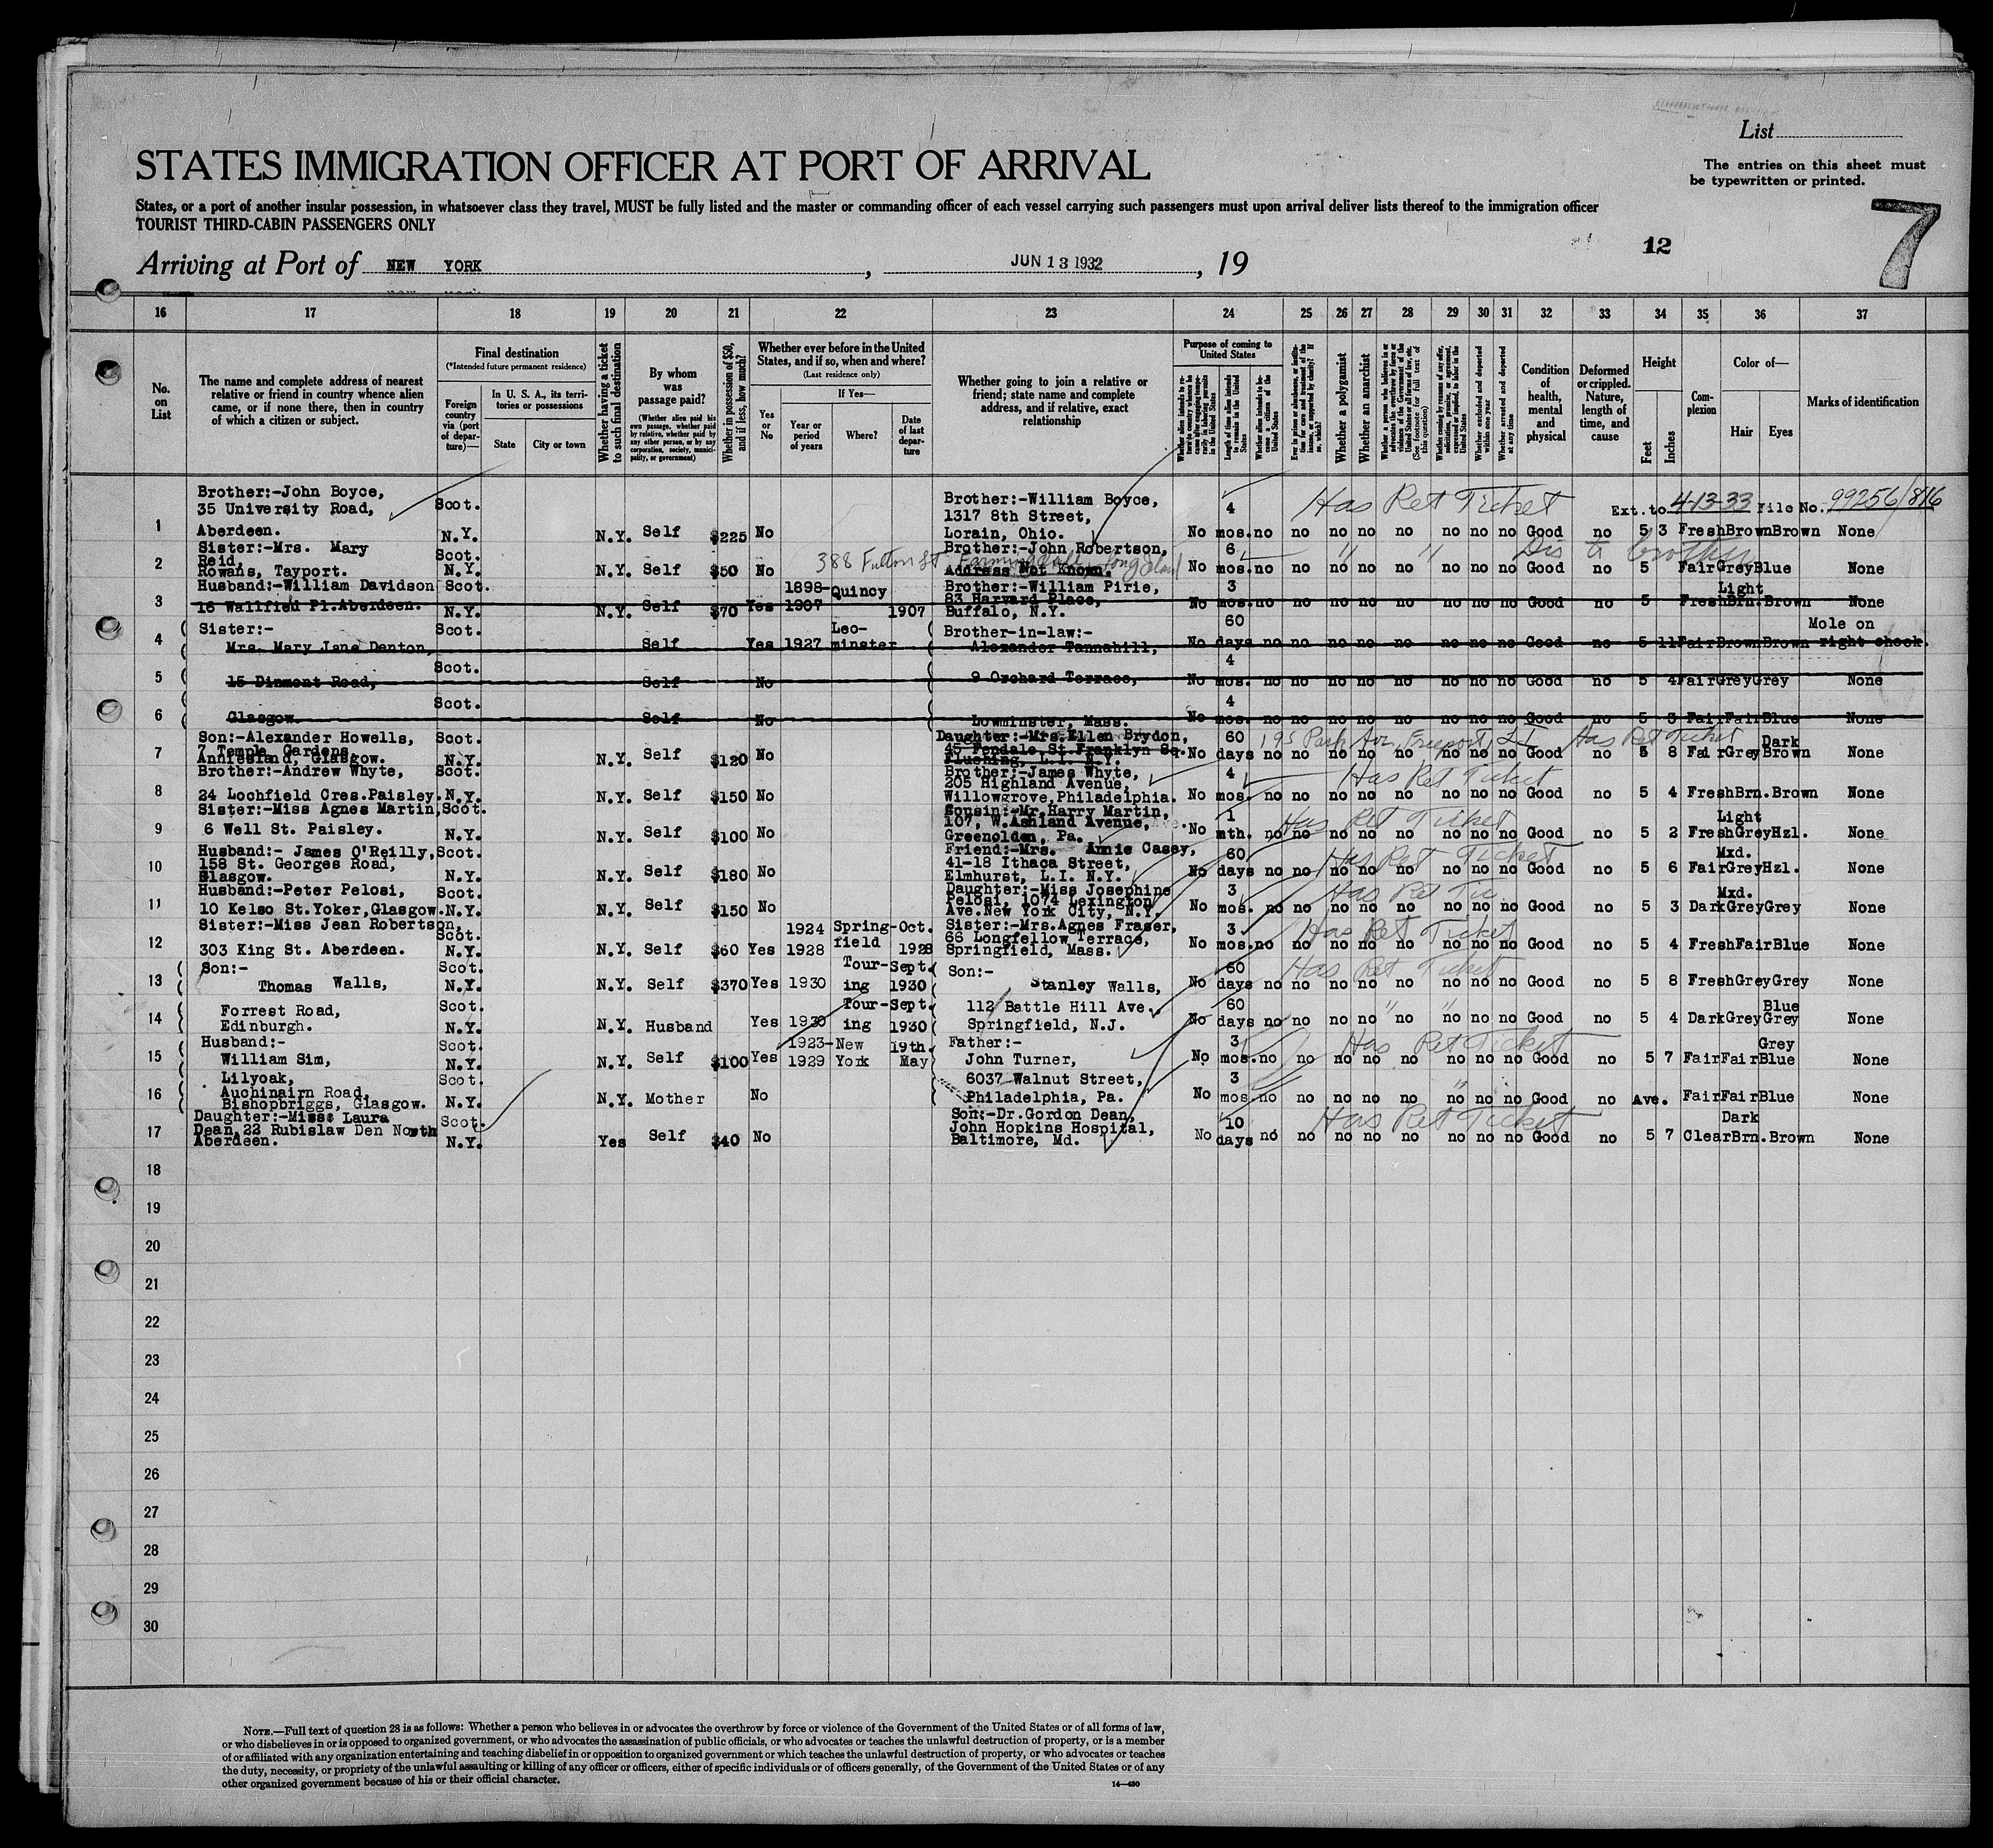 List
The entries on this sheet must
be typewritten or printed.
STATES IMMIGRATION OFFICER AT PORT OF ARRIVAL
States, or a port of another insular possession, in whatsoever class they travel, MUST be fully listed and the master or commanding officer of each vessel carrying such passengers must upon arrival deliver lists thereof to the immigration officer
TOURIST THIRD-CABIN PASSENGERS ONLY
12
7
Arriving at Port of NEW YORK, JUN 13 1932, 19
16 17 18 19 20 21 22 23 24 25 26 27 28 29 30 31 32 33 34 35 36 37
No. on List
The name and complete address of nearest
relative or friend in country whence alien
came, or if none there, then in country
of which a citizen or subject.
Final destination
(*Intended future permanent residence)
Foreign country via (port of departure)—
In U. S. A., its territories or possessions
State
City or town
Whether having a ticket to such final destination
By whom was passage paid?
(Whether alien paid his own passage, whether paid by relative, whether paid by any other person, or by any corporation, society, municipality, or government)
Whether in possession of $50, and if less, how much?
Whether ever before in the United States, and if so, when and where?
(Last residence only)
Yes or No
If Yes—
Year or period of years
Where?
Date of last departure
Whether going to join a relative or
friend; state name and complete
address, and if relative, exact
relationship
Purpose of coming to United States
Length of time alien intends to remain in the United States
Whether alien intends to become a citizen of the United States
Whether a polygamist
Whether an anarchist
Whether excluded and deported within one year
Whether arrested and deported at any time
Condition of health, mental and physical
Deformed or crippled. Nature, length of time, and cause
Height
Feet
Inches
Complexion
Color of—
Hair
Eyes
Marks of identification
Has Ret Ticket Ext. to 4-13-33 File No. 99256/816
1 Brother:-John Boyce, 35 University Road, Aberdeen. Scot. N.Y. N.Y. Self $225 No Brother:-William Boyce, 1317 8th Street, Lorain, Ohio. No 4 mos. no no no no no no no no Good no 5 3 Fresh Brown Brown None
388 Fulton St Farmingdale Long Island " " Dis to brother
2 Sister:-Mrs. Mary Reid, Rowans, Tayport. Scot. N.Y. N.Y. Self $50 No Brother:-John Robertson, Address Not Known. No 6 mos. no no no no no no no no Good no 5 Fair Grey Blue None
3 Husband:-William Davidson 16 Wallfied Pl.Aberdeen. Scot. N.Y. N.Y. Self $70 Yes 1898-1907 Quincy 1907 Brother:-William Pirie, 83 Harvard Place, Buffalo, N.Y. No 3 mos. no no no no no no no no Good no 5 Fresh Light Brn. Brown None
4 Sister:- Mrs. Mary Jane Denton, Scot. Self Yes 1927 Leominster Brother-in-law:- Alexander Tannahill, No 60 days no no no no no no no no Good no 5 11 Fair Brown Brown Mole on right cheek.
5 15 Dinmont Road, Scot. Self No 9 Orchard Terrace, No 4 mos. no no no no no no no no Good no 5 4 Fair Grey Grey None
6 Glasgow. Scot. Self No Lowminster, Mass. No 4 mos. no no no no no no no no Good no 5 3 Fair Fair Blue None
195 Park Av, Freeport LI Has Ret Ticket
7 Son:-Alexander Howells, 7 Temple Gardens, Anniesland, Glasgow. Scot. N.Y. N.Y. Self $120 No Daughter:-Mrs.Ellen Brydon, 45 Fendale St.Franklyn Sq. Flushing, L.I. N.Y. No 60 days no no no no no no no no Good no 5 8 Fair Grey Dark Brown None
Has Ret Ticket
8 Brother:-Andrew Whyte, 24 Lochfield Cres.Paisley. Scot. N.Y. N.Y. Self $150 No Brother:-James Whyte, 205 Highland Avenue, Willowgrove,Philadelphia. No 4 mos. no no no no no no no no Good no 5 4 Fresh Brn. Brown None
Has Ret Ticket
9 Sister:-Miss Agnes Martin, 6 Well St. Paisley. Scot. N.Y. N.Y. Self $100 No Cousin:-Mr.Harry Martin, 107, W.Ashland Avenue, Greenolden, Pa. No 1 mth. no no no no no no no no Good no 5 2 Fresh Light Grey Hzl. None
Has Ret Ticket
10 Husband:- James O'Reilly, 158 St. Georges Road, Glasgow. Scot. N.Y. N.Y. Self $180 No Friend:-Mrs. Annie Casey, 41-18 Ithaca Street, Elmhurst, L.I. N.Y. No 60 days no no no no no no no no Good no 5 6 Fair Mxd. Grey Hzl. None
Has Ret Tic
11 Husband:-Peter Pelosi, 10 Kelso St.Yoker,Glasgow. Scot. N.Y. N.Y. Self $150 No Daughter:-Miss Josephine Pelosi, 1074 Lexington Ave.New York City, N.Y. No 3 mos. no no no no no no no no Good no 5 3 Dark Mxd. Grey Grey None
Has Ret Ticket
12 Sister:-Miss Jean Robertson, 303 King St. Aberdeen. Scot. N.Y. N.Y. Self $60 Yes 1924 1928 Springfield Oct. 1928 Sister:-Mrs.Agnes Fraser, 66 Longfellow Terrace, Springfield, Mass. No 3 mos. no no no no no no no no Good no 5 4 Fresh Fair Blue None
Has Ret Ticket
13 Son:- Thomas Walls, Scot. N.Y. N.Y. Self $370 Yes 1930 Touring Sept. 1930 Son:- Stanley Walls, No 60 days no no no no no no no no Good no 5 8 Fresh Grey Grey None
" "
14 Forrest Road, Edinburgh. Scot. N.Y. N.Y. Husband Yes 1930 Touring Sept. 1930 112 Battle Hill Ave. Springfield, N.J. No 60 days no no no no no no no no Good no 5 4 Dark Grey Blue Grey None
Has Ret Ticket
15 Husband:- William Sim, Scot. N.Y. N.Y. Self $100 Yes 1923-1929 New York 19th. May Father:- John Turner, No 3 mos. no no no no no no no no Good no 5 7 Fair Fair Grey Blue None
"
16 Lilyoak, Auchinairn Road, Bishopbriggs, Glasgow. Scot. N.Y. N.Y. Mother No 6037 Walnut Street, Philadelphia, Pa. No 3 mos. no no no no no no no no Good no Ave. Fair Fair Blue None
Has Ret Ticket
17 Daughter:-Miss Laura Dean,22 Rubislaw Den North Aberdeen. Scot. N.Y. Yes Self $40 No Son:-Dr.Gordon Dean, John Hopkins Hospital, Baltimore, Md. No 10 days no no no no no no no no Good no 5 7 Clear Dark Brn. Brown None
18
19
20
21
22
23
24
25
26
27
28
29
30
NOTE.—Full text of question 28 is as follows: Whether a person who believes in or advocates the overthrow by force or violence of the Government of the United States or of all forms of law,
or who disbelieves in or is opposed to organized government, or who advocates the assassination of public officials, or who advocates or teaches the unlawful destruction of property, or is a member
of or affiliated with any organization entertaining and teaching disbelief in or opposition to organized government or which teaches the unlawful destruction of property, or who advocates or teaches
the duty, necessity, or propriety of the unlawful assaulting or killing of any officer or officers, either of specific individuals or of officers generally, of the Government of the United States or of any
other organized government because of his or their official character.
14—430